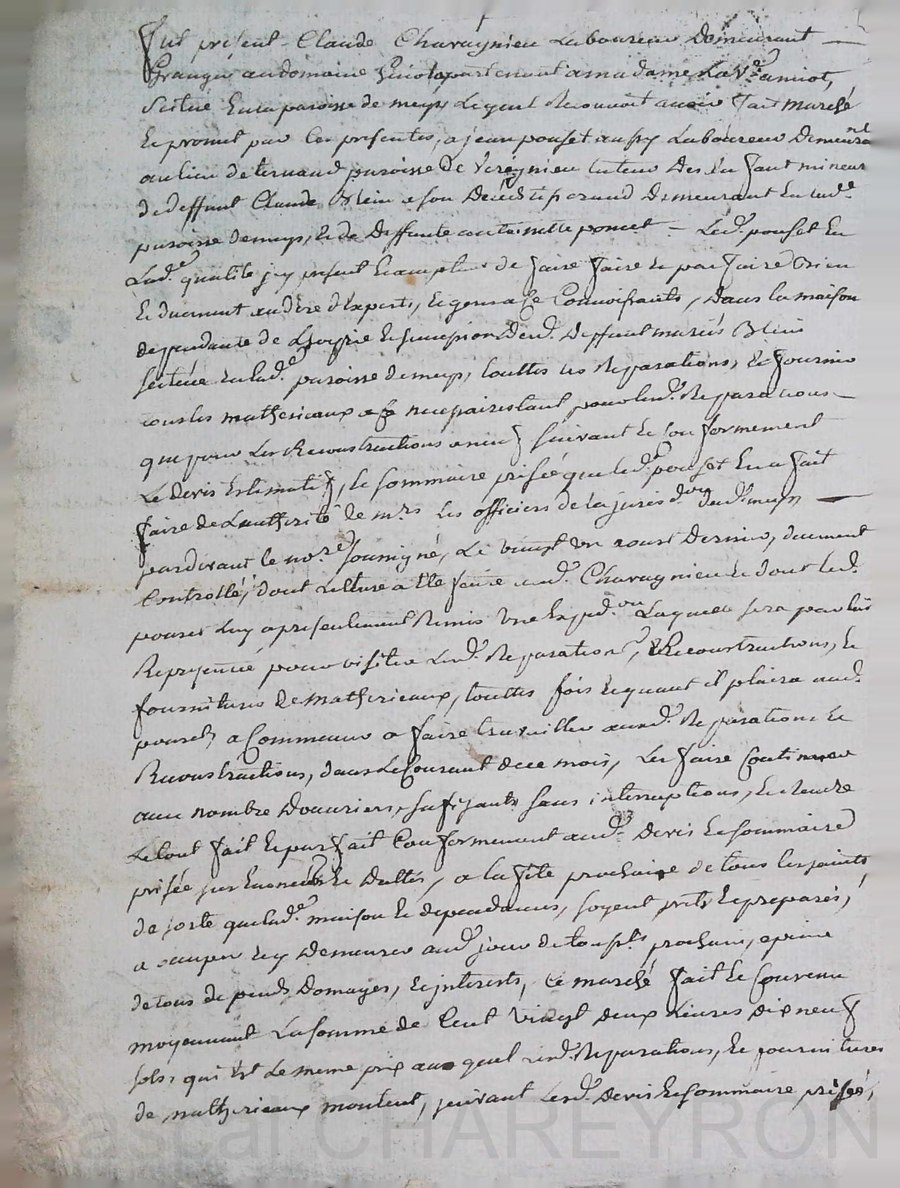 Fut présent Claude Charaynieu Laboureur Demeurant
Granger au domaine apartenant a madame La Ve amiot,
Scitué En La paroisse de meys Lequel Reconnoit avoir fait marché
Et promet par Ces presentes, a jean pouset aussy Laboureur Demeurant
au lieu de ternaud paroisse de Vereynieu tuteur Des Enfant mineur
de deffunt Claude Blein a son Décéds tisserand Demeurant En lade
paroisse de meys, Et de Deffunte antoinette poncet - Led. pouset En
Lade qualité jcy présent Et acceptant de faire faire Et parfaire Bien
Et duement au dire d'experts, Et gens a Ce Connoissants, Dans La maison
dependante de L'hoyrie Et sucession dud. Deffunt mariés Blein
scitüée En lade paroisse de meys, touttes les Reparations, Et fournir
tous les matheriaux necessaires tant pour lesd. Reparations
que pour Les Reconstructions a neuf suivant Et Conformement
Le Devis Estimatif, Et sommaire prisée que led. pouset En a fait
faire de L'autherité de mrs les officiers de la jurison dud. meys,
pardevant le nore soussigné, Le vingt aoust Dernier, duement
Controllé, dont Lecture a Eté faite aud. Charaynieu Et dont led.
pouset Luy a presentement Remis Une Expedon Laquelle sera par luy
pour visiter Lesd. Reparations, & Reconstructions, Et
fournitures de matheriaux, touttes fois Et quant il plaira aud.
pouset, a Commencer a faire travailler auxd. Reparations Et
Reconstructions, dans Le Courant de ce mois, Les faire Continuer
avec nombre D'ouvriers, sufisants sans interruptions, Et Rendre
Le tout fait Et parfait Conformement aud. Devis Et sommaire
prisée Et Dattés, a la fête prochaine de tous les saints
de sorte que lade maison Et dependances, soyent prets Et preparés,
a ocuper Et y Demeurer aud. jour de toussts prochain, a peine
de tous depends Domages, Et interests, Ce marché fait Et Convenu
moyennant La somme de Cent Vingt deux Livres Dix neuf
sols, qui Est Le meme prix auquel lesd. Reparations, Et fournitures
de matheriaux montent, suivant Lesd. Devis Et sommaire prisée,
Pascal CHAREYRON